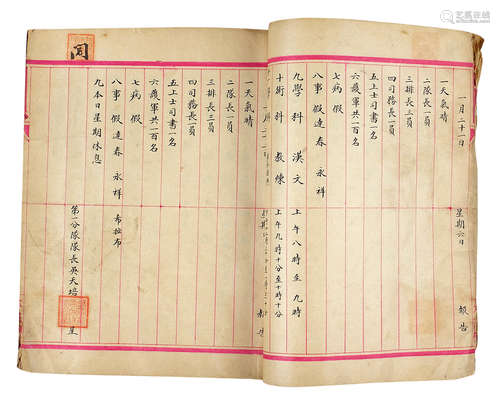 一月二十一日 星期六日 報告
一天氣晴
二隊長一員
三排長三員
四司務長一員
五上士司書一名
六護軍共一百名
七病假
八事假連春 永祥
九學科 漢文 上午八時至九時
十術科 教練 上午九時十分至十時十分
一天氣晴
二隊長一員
三排長三員
四司務長一員
五上士司書一名
六護軍共一百名
七病假
八事假連春 永祥 布拉布
九本日星期休息
第一分隊隊長英天培 呈
閱
艺典中国
yidianchina.com